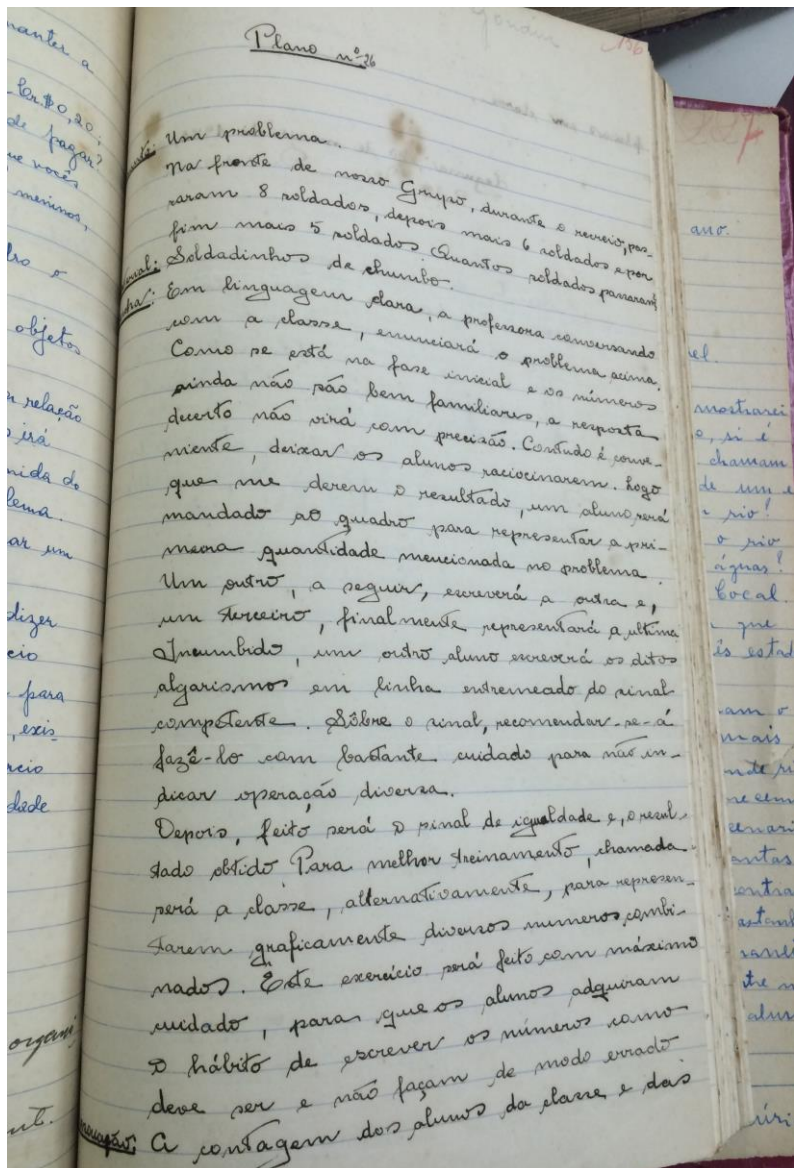 Plano nº 26
136
Um problema.
Na frente de nosso Grupo, durante o recreio, pas-
saram 8 soldados, depois mais 6 soldados e por
fim mais 5 soldados. Quantos soldados passaram
Soldadinhos de chumbo.
Em linguagem clara, a professora conversando
com a classe, enunciará o problema acima.
Como se está na fase inicial e os números
ainda não são bem familiares, a resposta
decerto não virá com precisão. Contudo é conve-
niente, deixar os alunos raciocinarem. Logo
que me derem o resultado, um aluno será
mandado ao quadro para representar a pri-
meira quantidade mencionada no problema.
Um outro, a seguir, escreverá a outra e,
um terceiro, finalmente representará a ultima
Incumbido, um outro aluno escreverá os ditos
algarismos em linha entremeado do sinal
competente. Sôbre o sinal, recomendar-se-á
fazê-lo com bastante cuidado para não in-
dicar operação diversa.
Depois, feito será o sinal de igualdade e, o resul-
tado obtido Para melhor treinamento, chamada
será a classe, alternativamente, para represen-
tarem graficamente diversos numeros combi-
nados. Êste exercício será feito com máximo
cuidado, para que os alunos adquiram
o hábito de escrever os números como
deve ser e não façam de modo errado
A contagem dos alunos da classe e das
manter a
Cr.$0,20;
de pagar?
que vocês
meninos,
objetos
relação
irá
ar um
dizer
para
exis
dade
organi
ano.
mostrarei
o, si é
chamam
de um e
rio?
o rio
águas?
local.
que
mais